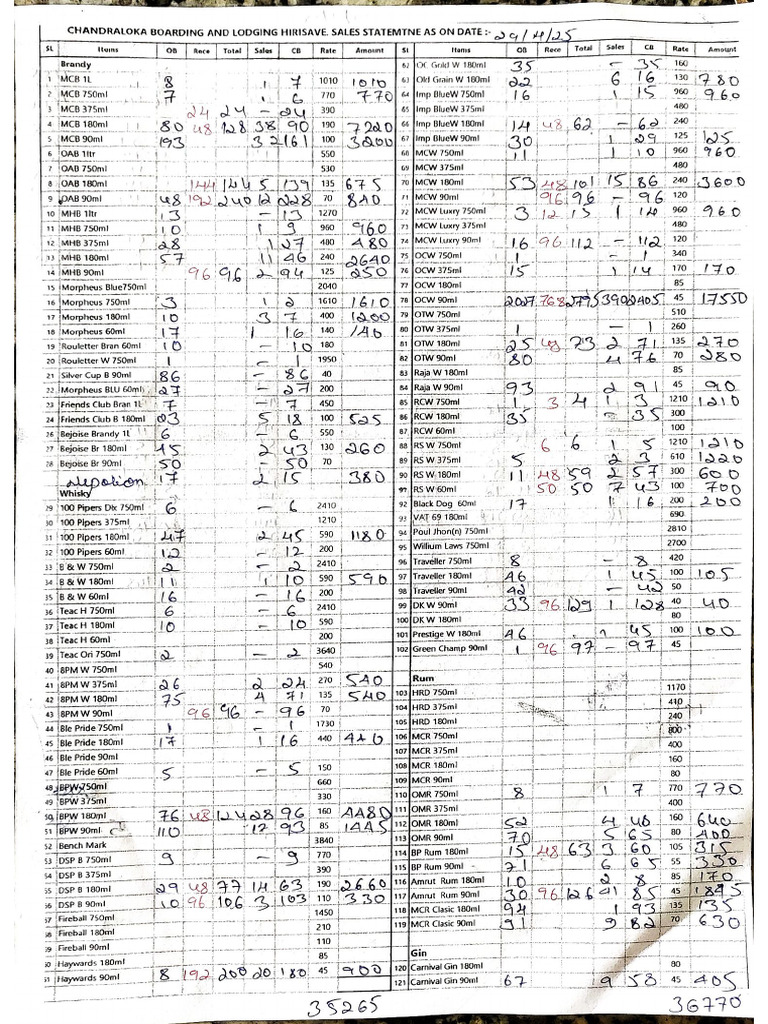 CHANDRALOKA BOARDING AND LODGING HIRISAVE. SALES STATEMTNE AS ON DATE :- 29/4/25
SL Items OB Rece Total Sales CB Rate Amount
Brandy
1 MCB 1L 8 1 7 1010 1010
2 MCB 750ml 7 1 6 770 770
3 MCB 375ml 24 24 - 24 390
4 MCB 180ml 80 48 128 38 90 190 7220
5 MCB 90ml 193 32 161 100 3200
6 OAB 1ltr 550
7 OAB 750ml 530
8 OAB 180ml 144 144 5 139 135 675
9 OAB 90ml 48 192 240 12 228 70 840
10 MHB 1ltr 13 - 13 1270
11 MHB 750ml 10 1 9 960 960
12 MHB 375ml 28 1 27 480 480
13 MHB 180ml 57 11 46 240 2640
14 MHB 90ml 96 96 2 94 125 250
15 Morpheus Blue750ml 2040
16 Morpheus 750ml 3 1 2 1610 1610
17 Morpheus 180ml 10 3 7 400 1200
18 Morpheus 60ml 17 1 16 140 140
19 Rouletter Bran 60ml 10 - 10 180
20 Rouletter W 750ml 1 - 1 1950
21 Silver Cup B 90ml 86 - 86 40
22 Morpheus BLU 60ml 27 - 27 200
23 Friends Club Bran 1L 7 - 7 450
24 Friends Club B 180ml 23 5 18 100 525
26 Bejoise Brandy 1L 6 - 6 550
27 Bejoise Br 180ml 45 2 43 130 260
28 Bejoise Br 90ml 50 - 50 70
Nepolion 17 2 15 380
Whisky
29 100 Pipers Dlx 750ml 6 - 6 2410
30 100 Pipers 375ml 1210
31 100 Pipers 180ml 47 2 45 590 1180
32 100 Pipers 60ml 12 - 12 200
33 B & W 750ml 2 - 2 2410
34 B & W 180ml 11 1 10 590 590
35 B & W 60ml 16 - 16 200
36 Teac H 750ml 6 - 6 2410
37 Teac H 180ml 10 - 10 590
38 Teac H 60ml 200
39 Teac Ori 750ml 2 - 2 3640
40 8PM W 750ml 540
41 8PM W 375ml 26 2 24 270 540
42 8PM W 180ml 75 4 71 135 540
43 8PM W 90ml 96 96 - 96 70
44 Ble Pride 750ml 1 - 1 1730
45 Ble Pride 180ml 17 1 16 440 440
46 Ble Pride 90ml
47 Ble Pride 60ml 5 - 5 150
48 BPW 750ml 660
49 BPW 375ml 330
50 BPW 180ml 76 48 124 28 96 160 4480
51 BPW 90ml 110 12 93 85 1445
52 Bench Mark 3840
53 DSP B 750ml 9 - 9 770
54 DSP B 375ml 390
55 DSP B 180ml 29 48 77 14 63 190 2660
56 DSP B 90ml 10 96 106 3 103 110 330
57 Fireball 750ml 1450
58 Fireball 180ml 210
59 Fireball 90ml 110
60 Haywards 180ml 85
61 Haywards 90ml 8 192 200 20 180 45 900
35265
Sl Items OB Rece Total Sales CB Rate Amount
62 OC Grold W 180ml 35 - 35 160
63 Old Grain W 180ml 22 6 16 130 780
64 Imp BlueW 750ml 16 1 15 960 960
65 Imp BlueW 375ml 480
66 Imp BlueW 180ml 14 48 62 - 62 240
67 Imp BlueW 90ml 30 1 29 125 125
68 MCW 750ml 11 1 10 960 960
69 MCW 375ml 480
70 MCW 180ml 53 48 101 15 86 240 3600
71 MCW 90ml 96 96 - 96 120
72 MCW Luxry 750ml 3 12 15 1 14 960 960
73 MCW Luxry 375ml 480
74 MCW Luxry 90ml 16 96 112 - 112 120
75 OCW 750ml 1 - 1 340
76 OCW 375ml 15 1 14 170 170
77 OCW 180ml 85
78 OCW 90ml 2027 768 2795 390 2405 45 17550
79 OTW 750ml 510
80 OTW 375ml 1 - 1 260
81 OTW 180ml 25 48 73 2 71 135 270
82 OTW 90ml 80 4 76 70 280
83 Raja W 180ml 85
84 Raja W 90ml 93 2 91 45 90
85 RCW 750ml 1 3 4 1 3 1210 1210
86 RCW 180ml 35 - 35 300
87 RCW 60ml 100
88 RS W 750ml 6 6 1 5 1210 1210
89 RS W 375ml 5 2 3 610 1220
90 RS W 180ml 11 48 59 2 57 300 600
91 RS W 60ml 50 50 7 43 100 700
92 Black Dog 60ml 17 1 16 200 200
93 VAT 69 180ml 690
94 Poul Jhon(n) 750ml 2810
95 Wilium Laws 750ml 2700
96 Traveller 750ml 8 - 8 420
97 Traveller 180ml 46 1 45 100 105
98 Traveller 90ml 42 - 42 50
99 DK W 90ml 33 96 129 1 128 40 40
100 DK W 180ml 80
101 Prestige W 180ml 46 45 100 100
102 Green Champ 90ml 1 96 97 - 97 45
Rum
103 HRD 750ml 1170
104 HRD 375ml 410
105 HRD 180ml 240
106 MCR 750ml 800
107 MCR 375ml 400
108 MCR 180ml 160
109 MCR 90ml 80
110 OMR 750ml 8 1 7 770 770
111 OMR 375ml 400
112 OMR 180ml 52 4 48 160 640
113 OMR 90ml 70 5 65 80 400
114 BP Rum 180ml 15 48 63 3 60 105 315
115 BP Rum 90ml 71 6 65 55 330
116 Amrut Rum 180ml 10 2 8 85 170
117 Amrut Rum 90ml 30 96 126 41 85 45 1845
118 MCR Clasic 180ml 94 1 93 135 135
119 MCR Clasic 90ml 91 9 82 70 630
Gin
120 Carnival Gin 180ml 80
121 Carnival Gin 90ml 67 9 58 45 405
36770